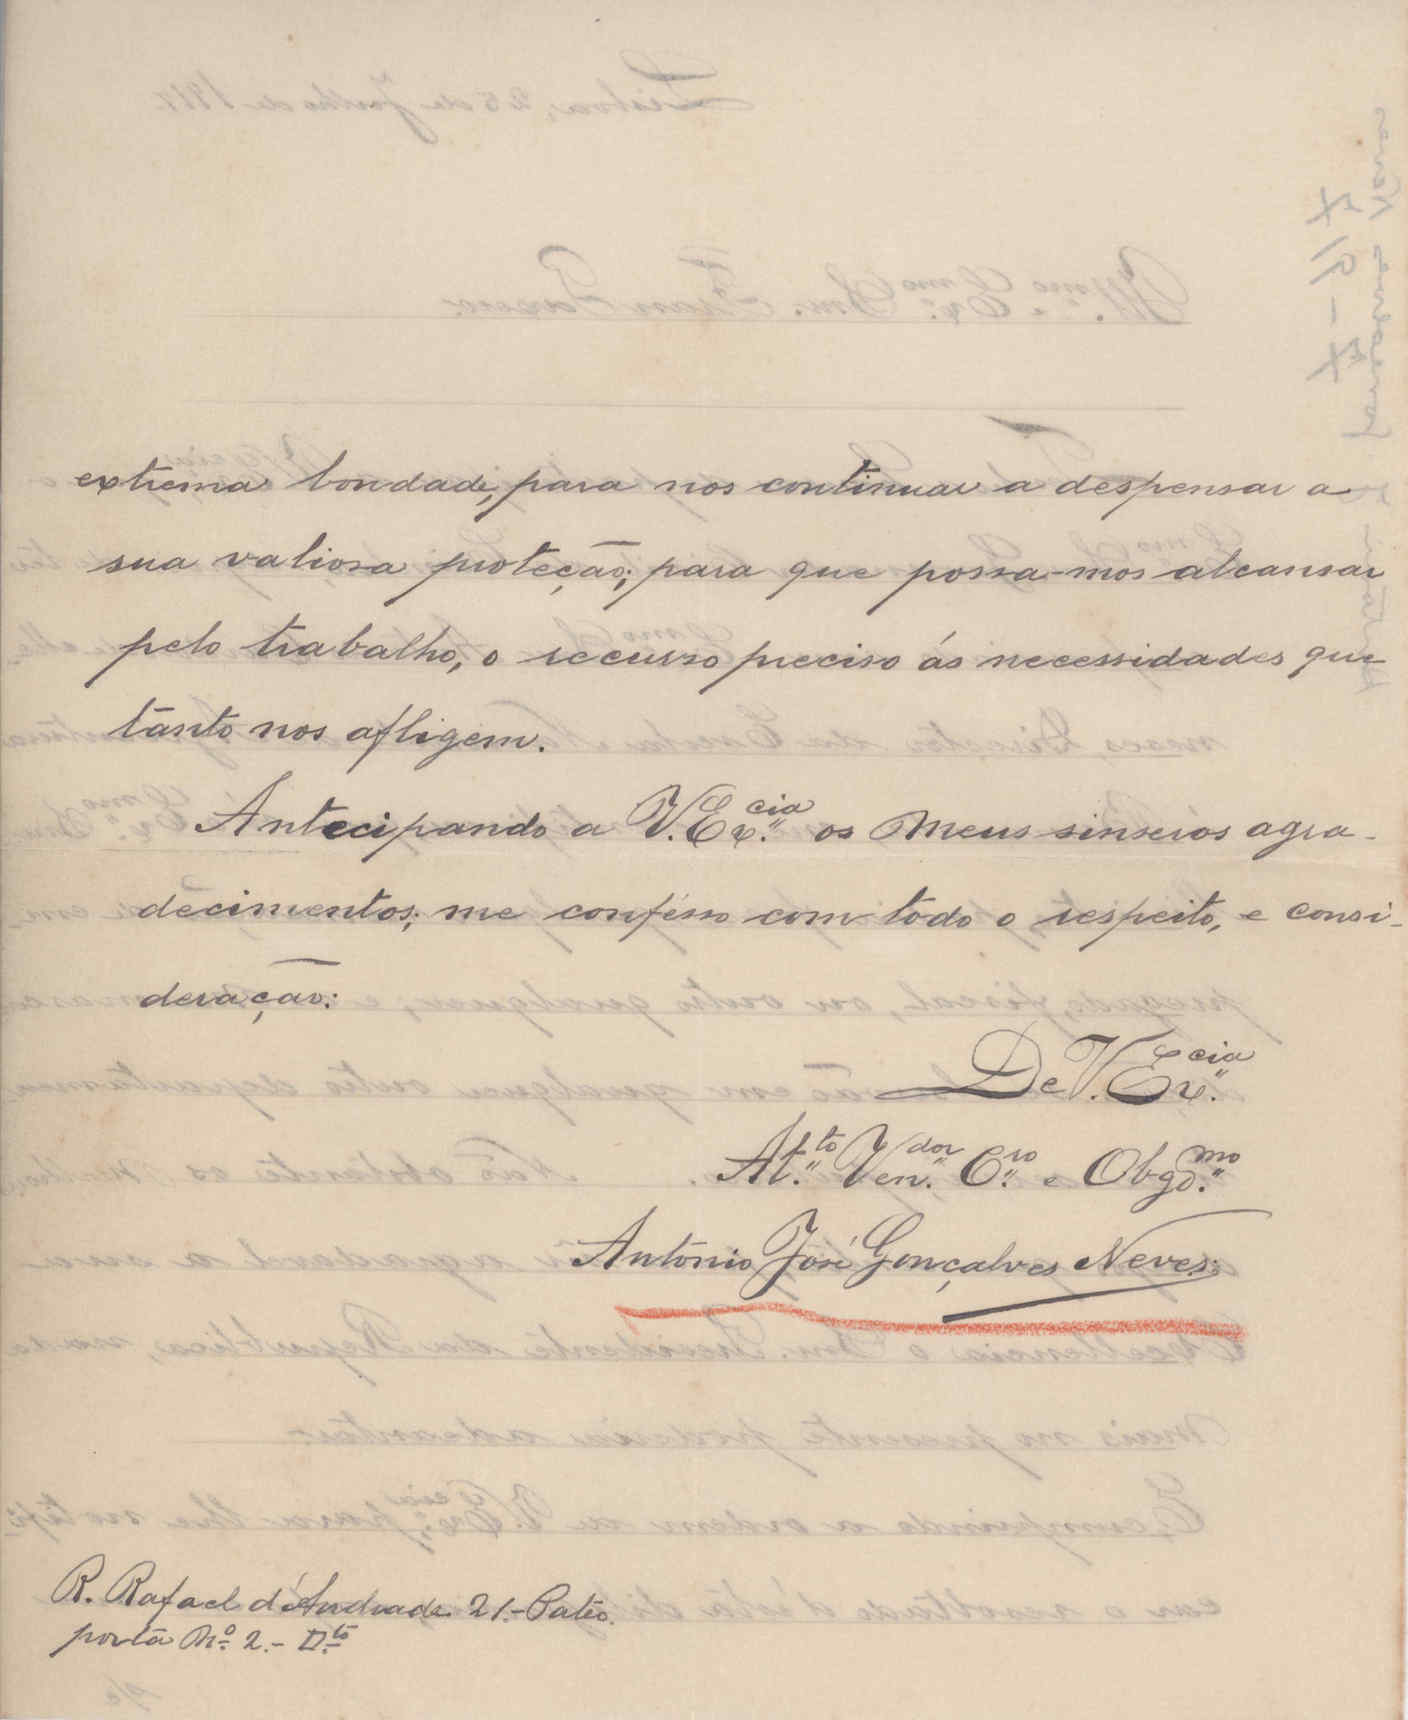 extrema bondade, para nos continuar a despensar a
sua valiosa proteção; para que possa-mos alcansar
pelo trabalho, o recurso preciso ás necessidades que
tanto nos afligem.
Antecipando a V. Ex.cia os meus sinseros agra-
decimentos; me confésso com todo o respeito, e consi-
deração:
De V. Ex.cia
At.to Ven.dor C.ro e Obgd.mo
António José Gonçalves Neves.
R. Rafael d'Andrade 21.- Patéo.
porta Nº 2.- D.to